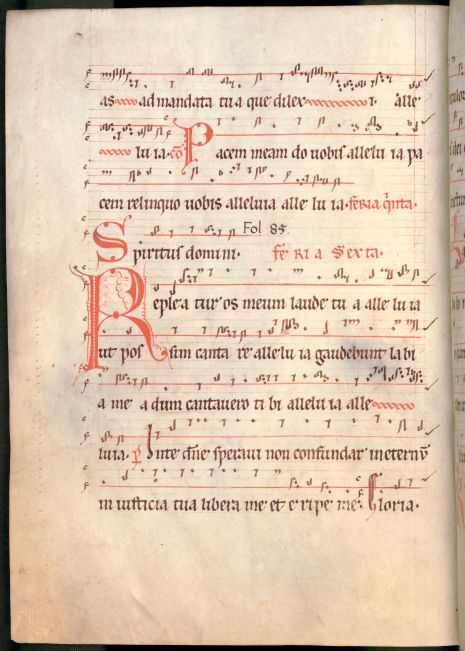 as ad mandata tu a que dilex i. alle
lu ia. cō Pacem meam do uobis allelu ia pa
cem relinquo uobis alleluia alle lu ia. feria q̄nta.
Fol 85.
Spiritus domini. feria Sexta.
Replea tur os meum laude tu a alle lu ia
ut pos sim canta re allelu ia gaudebunt labi
a me a dum cantauero ti bi allelu ia alle
luia. p̄ Inte dn̄e speraui non confundar ineternū
in iusticia tua libera me et e ripe me. Gloria.